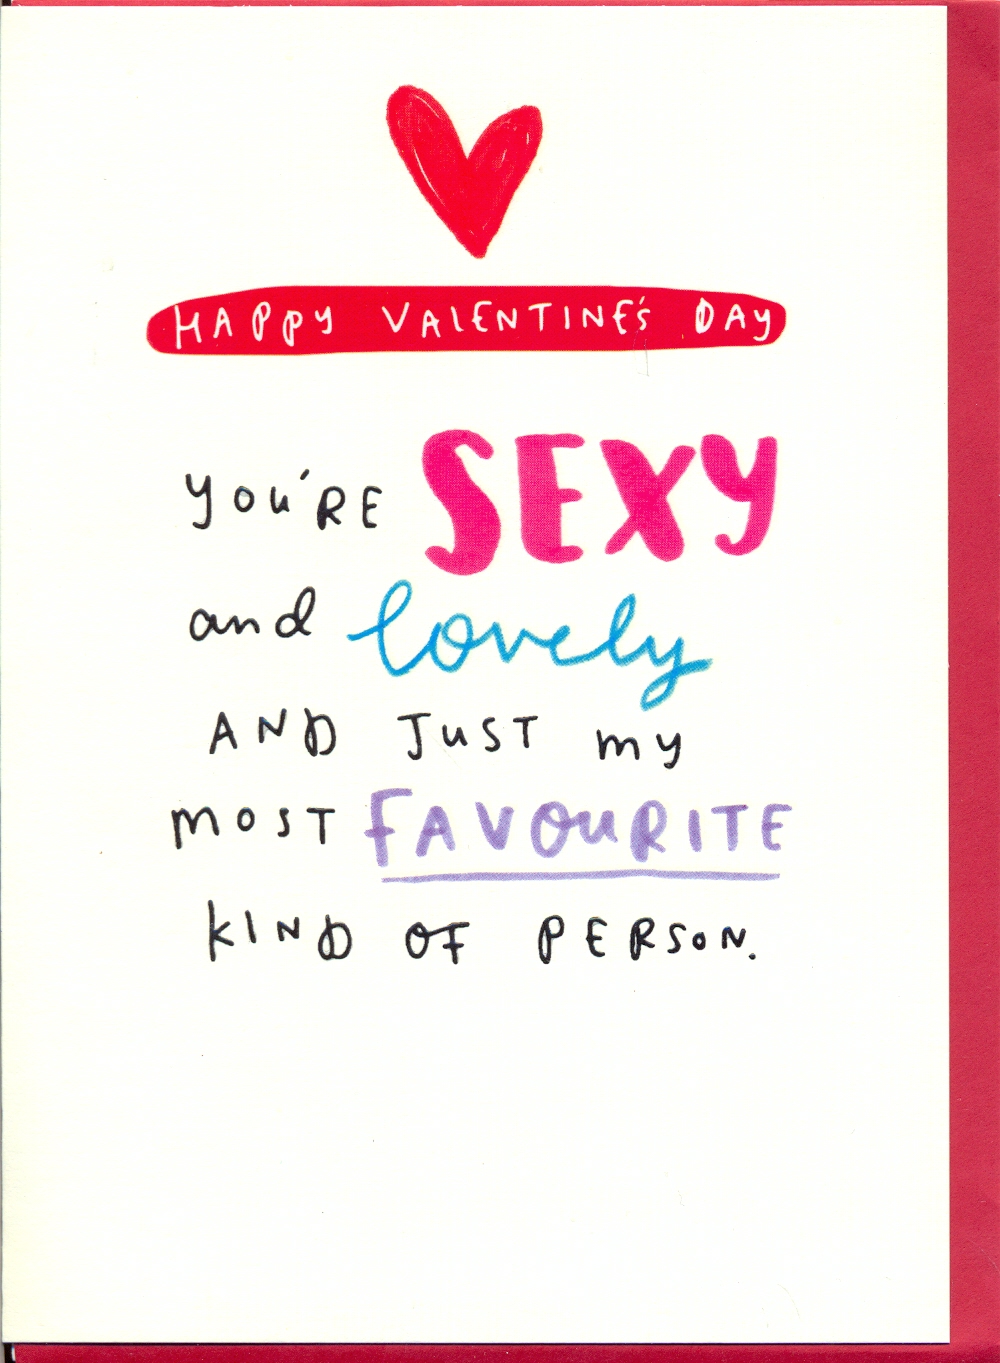 HAPPY VALENTINE'S DAY
YOU'RE SEXY
and lovely
AND JUST my
MOST FAVOURITE
KIND OF PERSON.